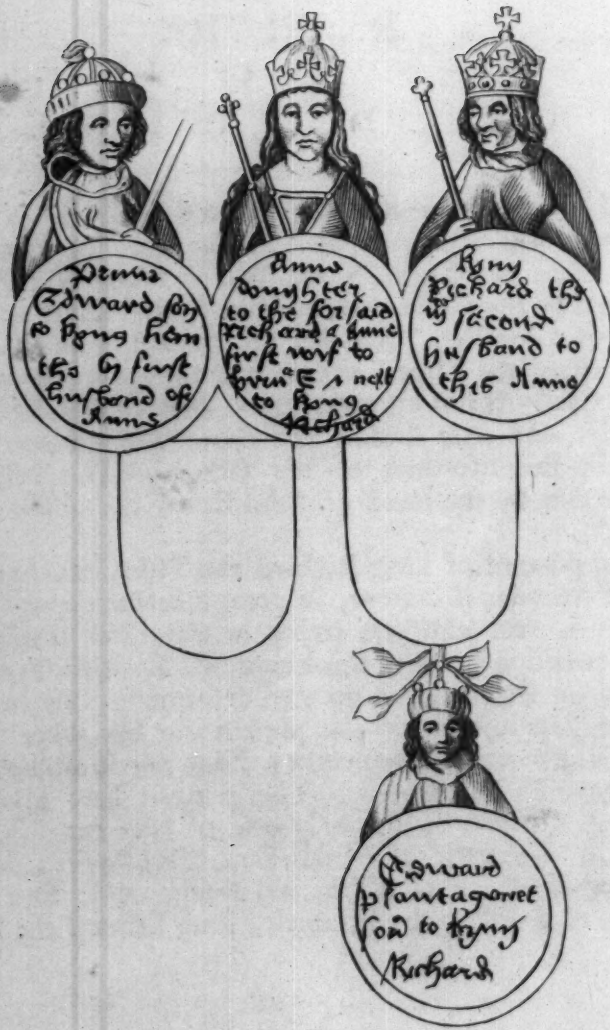 Prince
Edward son
to kyng henri
the vj furst
husbond of
Anne
Anne
doughter
to the forsaid
Richard & Anne
first wif to
prince E & next
to kyng
Richard
kyng
Richard the
iij second
husband to
this Anne
Edward
plantagenet
son to kyng
Richard